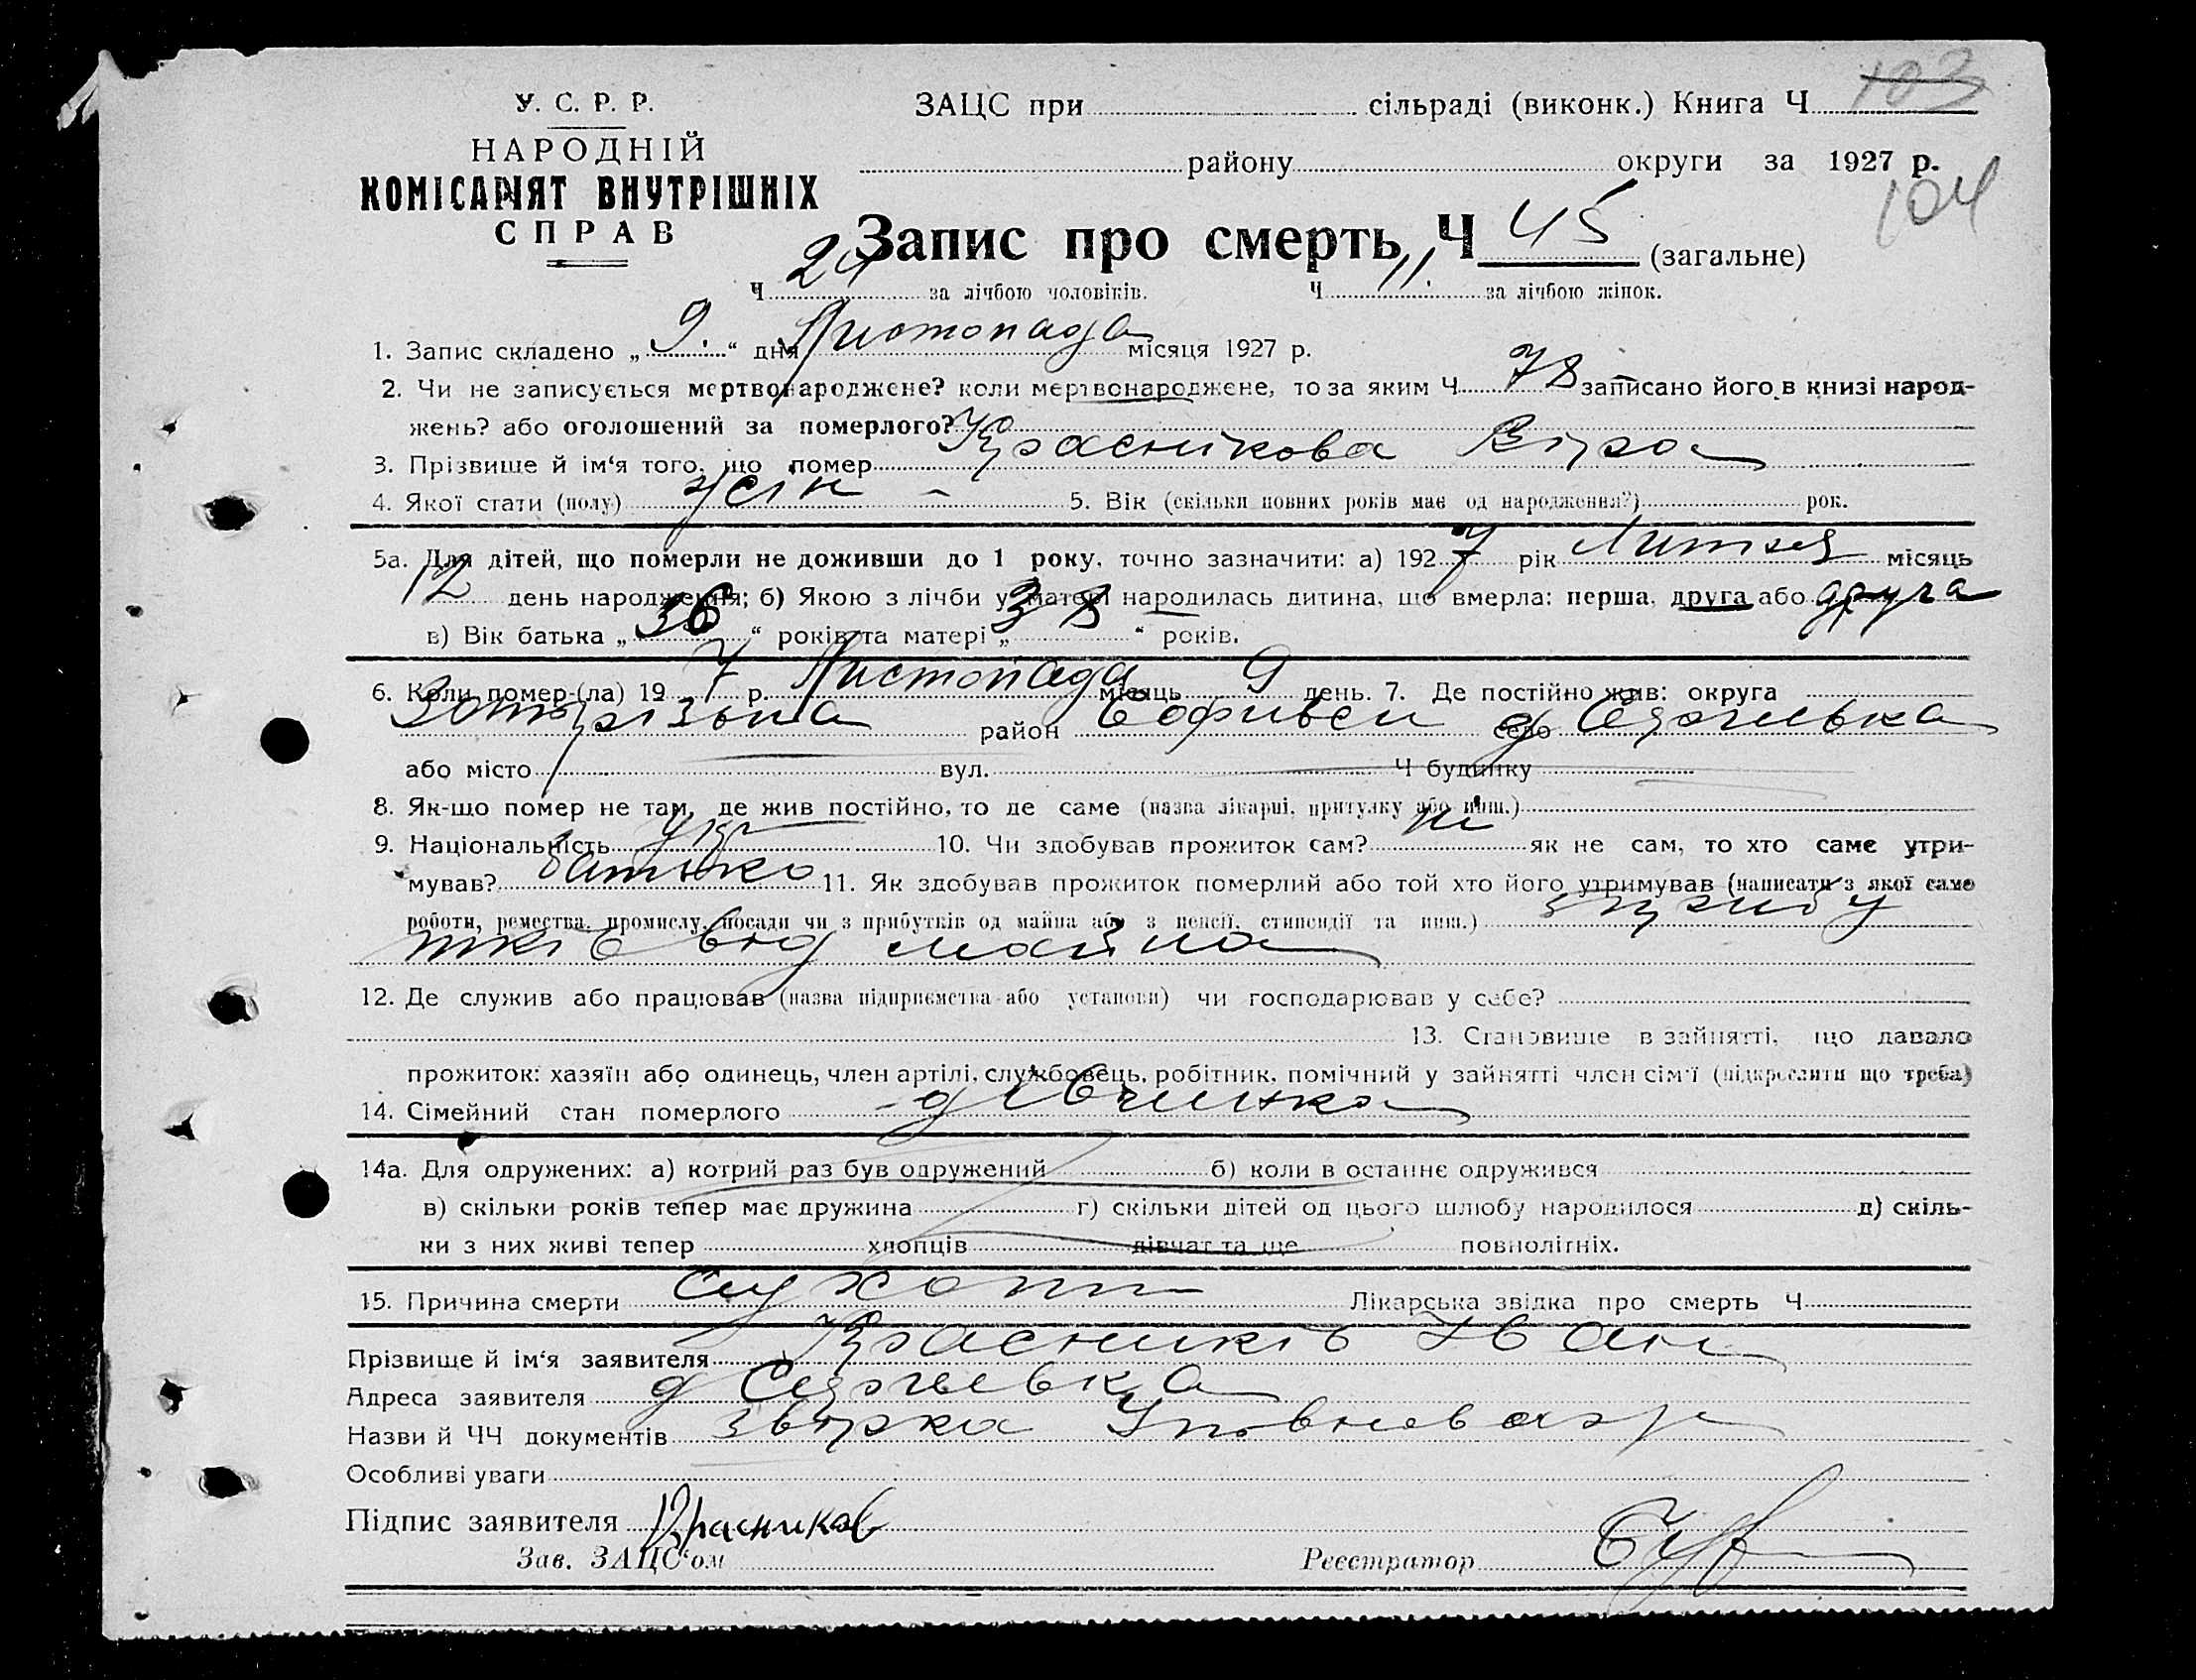 103
У. С. Р. Р.
ЗАЦС при сільраді (виконк.) Книга Ч
НАРОДНІЙ
КОМІСАРІЯТ ВНУТРІШНІХ
СПРАВ
району округи за 1927 р.
104
Запис про смерть Ч 45 (загальне)
Ч 24 за лічбою чоловіків. Ч 11. за лічбою жінок.
1. Запис складено „ 9. “ дня Листопада місяця 1927 р.
2. Чи не записується мертвонароджене? коли мертвонароджене, то за яким Ч 78 записано його в книзі народ-
жень? або оголошений за померлого?
3. Прізвище й ім‘я того, що помер Краснікова Віра
4. Якої стати (полу) жін 5. Вік (скільки повних років має од народження?) рок.
5а. Для дітей, що померли не доживши до 1 року, точно зазначити: а) 192 7 рік місяць
12 день народження; б) Якою з лічби у матері народилась дитина, що вмерла: перша, друга або друга
в) Вік батька „ 36 “ років та матері „ 38 “ років.
6. Коли помер-(ла) 19 7 р. Листопада місяць 9 день. 7. Де постійно жив: округа
Запорізька район Софиївськ село д
або місто вул. Ч будинку
8. Як-що помер не там, де жив постійно, то де саме (назва лікарні, притулку або инш.)
9. Національність укр 10. Чи здобував прожиток сам? ні як не сам, то хто саме утри-
мував? батько 11. Як здобував прожиток померлий або той хто його утримував (написати з якої саме
роботи, ремества, промислу, посади чи з прибутків од майна або з пенсії, стипендії та инш.) з прибу
тків від майна
12. Де служив або працював (назва підприємства або установи) чи господарював у себе?
13. Становище в зайнятті, що давало
прожиток: хазяїн або одинець, член артілі, службовець, робітник, помічний у зайнятті член сім‘ї (підкреслити що треба)
14. Сімейний стан померлого дівчинка
14а. Для одружених: а) котрий раз був одружений б) коли в останнє одружився
в) скільки років тепер має дружина г) скільки дітей од цього шлюбу народилося д) скіль-
ки з них живі тепер хлопців дівчат та ще повнолітніх.
15. Причина смерти сухоти Лікарська звідка про смерть Ч
Прізвище й ім‘я заявителя Красників Іван
Адреса заявителя д
Назви й ЧЧ документів
Особливі уваги
Підпис заявителя Красников
Зав. ЗАЦС‘ом Реєстратор